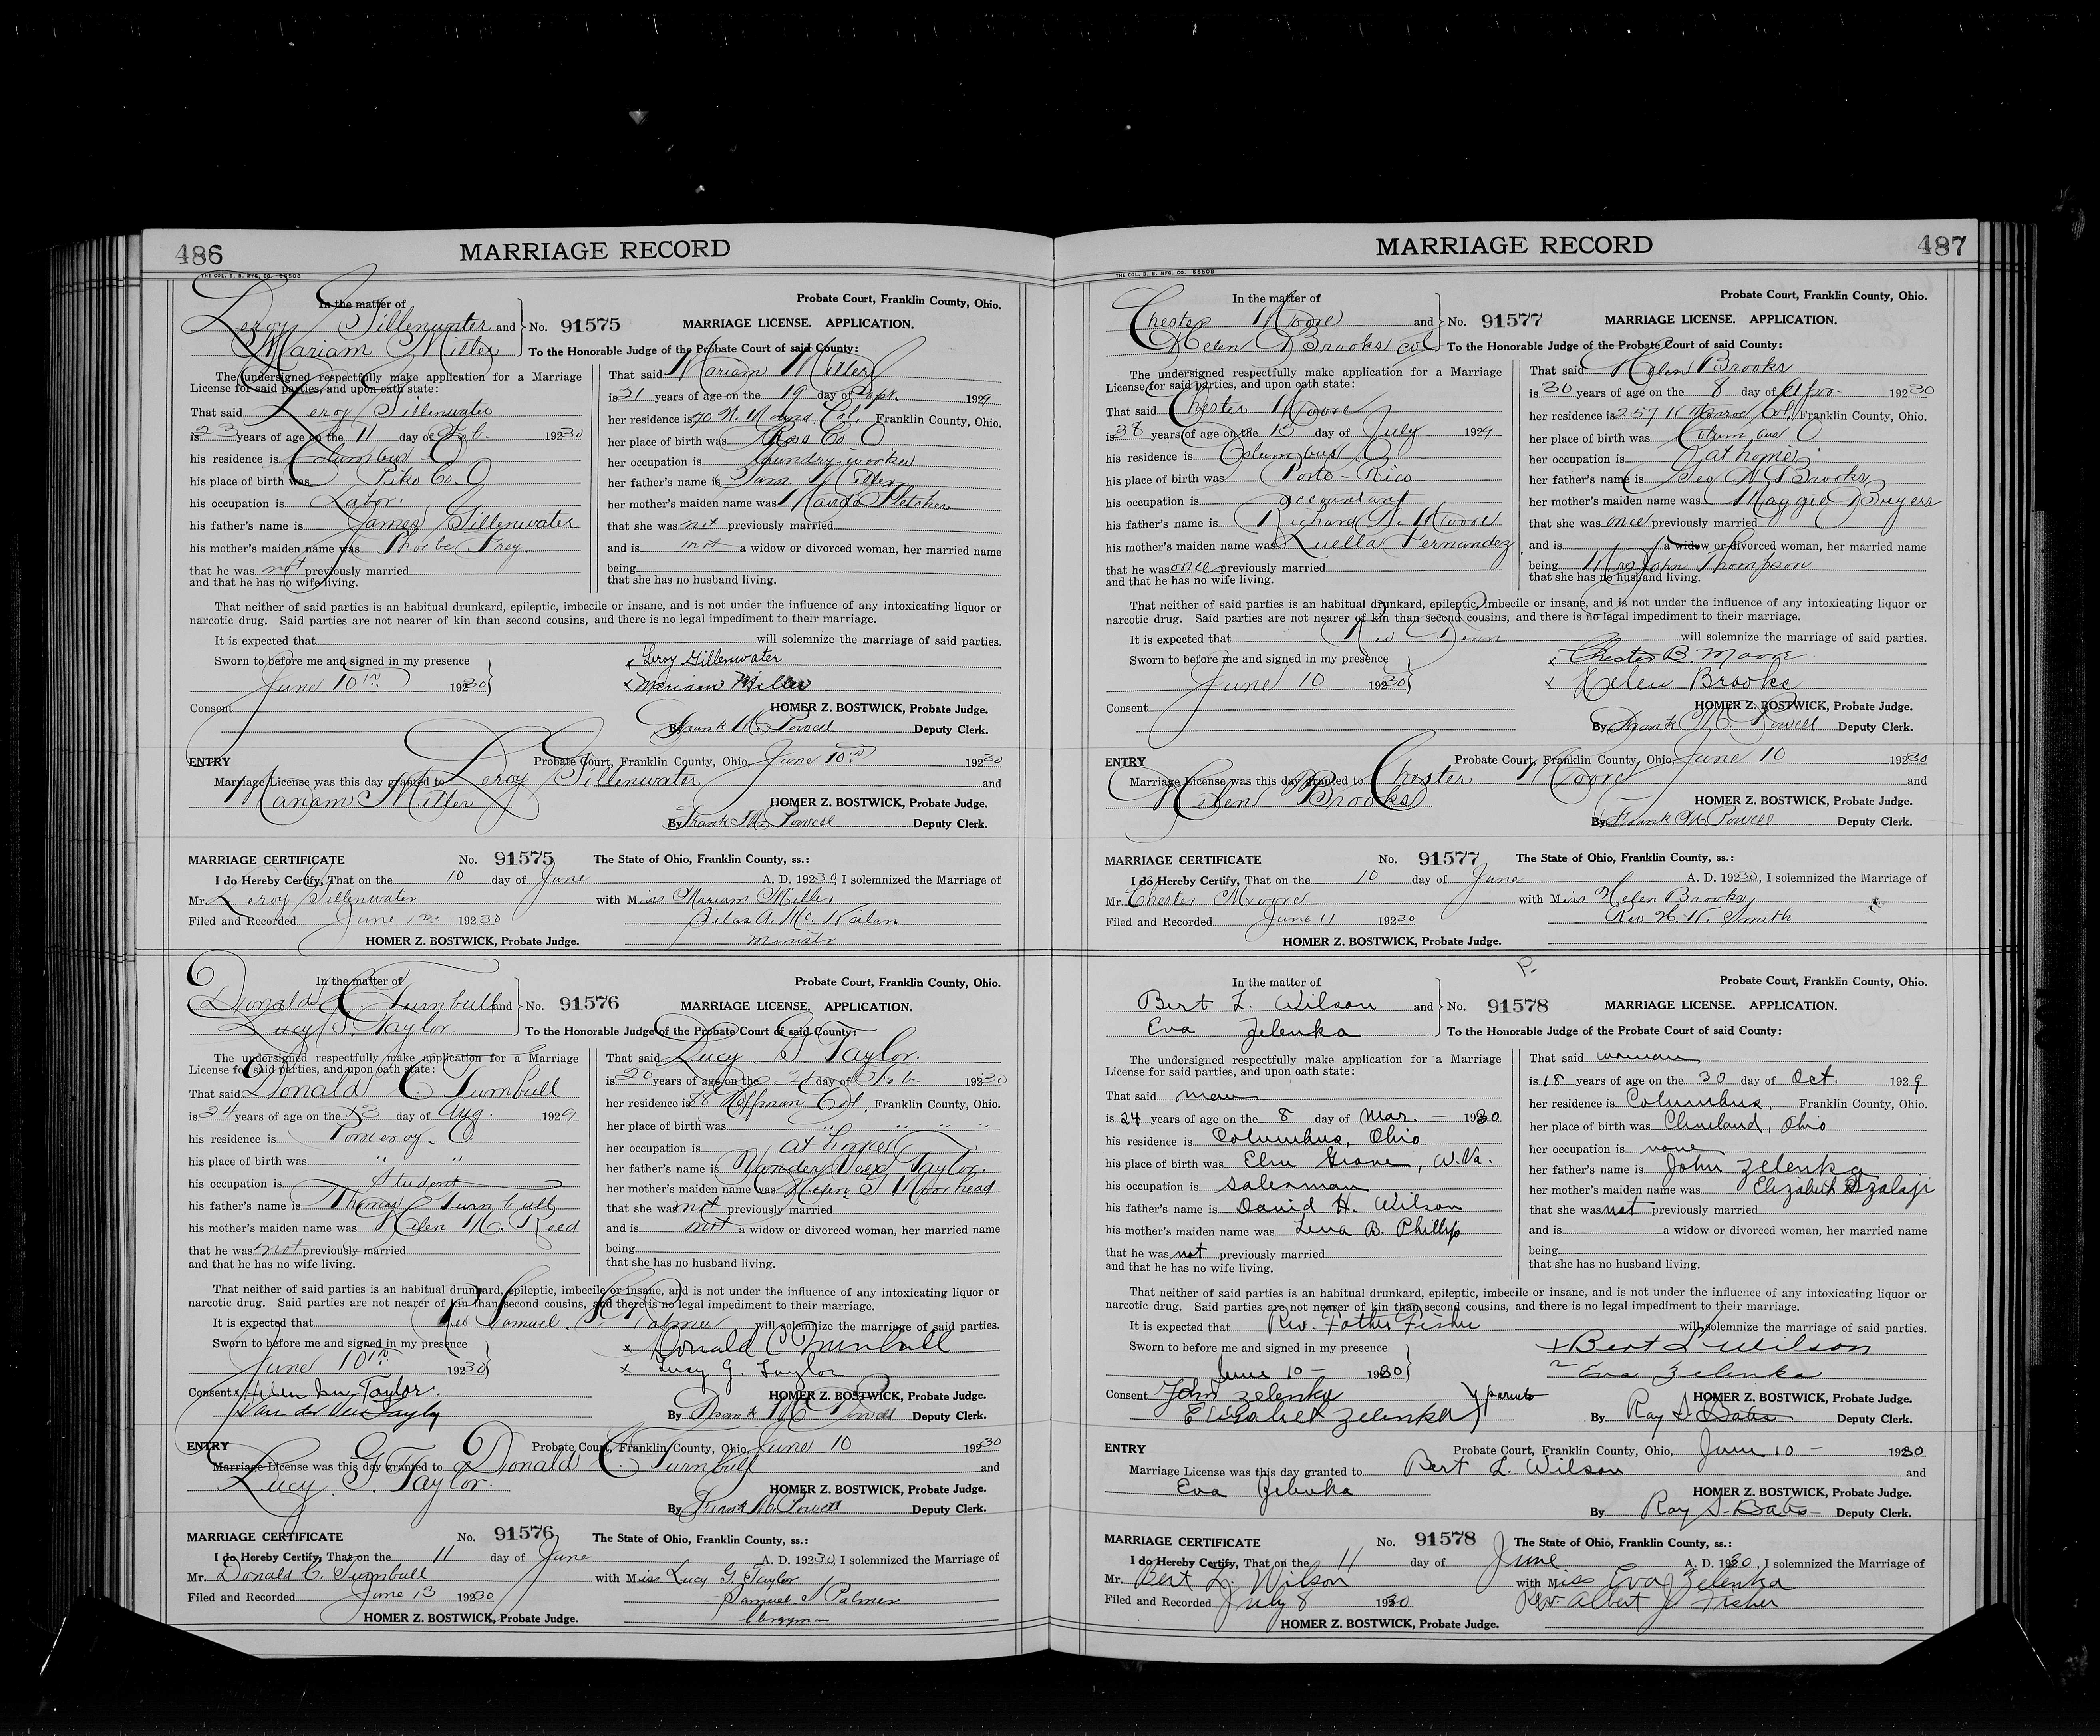 486
MARRIAGE RECORD
THE COL. B. B. MFG. CO. 66508
In the matter of
Leroy Gillenwater and
Mariam Miller
No. 91575
Probate Court, Franklin County, Ohio.
MARRIAGE LICENSE. APPLICATION.
To the Honorable Judge of the Probate Court of said County:
The undersigned respectfully make application for a Marriage
License for said parties, and upon oath state:
That said Leroy Gillenwater
is 23 years of age on the 11 day of Feb. 1930
his residence is Columbus O
his place of birth was Pike Co. O
his occupation is Labor.
his father's name is James Gillenwater
his mother's maiden name was Phoebe Frey.
that he was not previously married
and that he has no wife living.
That said Mariam Miller
is 21 years of age on the 19 day of Sept. 1929
her residence is Col. Franklin County, Ohio.
her place of birth was Ross Co O
her occupation is laundry-worker
her father's name is Sam Miller
her mother's maiden name was Maude Fletcher
that she was not previously married
and is not a widow or divorced woman, her married name
being
that she has no husband living.
That neither of said parties is an habitual drunkard, epileptic, imbecile or insane, and is not under the influence of any intoxicating liquor or
narcotic drug. Said parties are not nearer of kin than second cousins, and there is no legal impediment to their marriage.
It is expected that will solemnize the marriage of said parties.
Sworn to before me and signed in my presence
June 10th 1930
x Leroy Gillenwater
x Meriam Miller
Consent
HOMER Z. BOSTWICK, Probate Judge.
By Frank M. Powell Deputy Clerk.
ENTRY
Probate Court, Franklin County, Ohio, June 10th 1930
Marriage License was this day granted to Leroy Gillenwater and
Mariam Miller
HOMER Z. BOSTWICK, Probate Judge.
By Frank M. Powell Deputy Clerk.
MARRIAGE CERTIFICATE No. 91575 The State of Ohio, Franklin County, ss.:
I do Hereby Certify, That on the 10 day of June A. D. 1930, I solemnized the Marriage of
Mr. Leroy Gillenwater with Miss Mariam Miller
Filed and Recorded June 1930
Minister
HOMER Z. BOSTWICK, Probate Judge.
In the matter of
Donald C. Turnbull and
Lucy G. Taylor
No. 91576
Probate Court, Franklin County, Ohio.
MARRIAGE LICENSE. APPLICATION.
To the Honorable Judge of the Probate Court of said County:
The undersigned respectfully make application for a Marriage
License for said parties, and upon oath state:
That said Donald C Turnbull
is 24 years of age on the day of Aug. 1929
his residence is Pomeroy. O
his place of birth was " "
his occupation is Student
his father's name is Thomas Turnbull
his mother's maiden name was Helen M. Reed
that he was not previously married
and that he has no wife living.
That said Lucy G. Taylor.
is 20 years of age on the day of Feb. 1930
her residence is Col, Franklin County, Ohio.
her place of birth was " " " "
her occupation is at home
her father's name is Vander Veer Taylor.
her mother's maiden name was Helen G Moorhead
that she was not previously married
and is not a widow or divorced woman, her married name
being
that she has no husband living.
That neither of said parties is an habitual drunkard, epileptic, imbecile or insane, and is not under the influence of any intoxicating liquor or
narcotic drug. Said parties are not nearer of kin than second cousins, and there is no legal impediment to their marriage.
It is expected that Rev Samuel S. Palmer will solemnize the marriage of said parties.
Sworn to before me and signed in my presence
June 10th 1930
x Donald C Turnbull
x Lucy G. Taylor
Consent Helen M. Taylor.
Van der Veer Taylor
HOMER Z. BOSTWICK, Probate Judge.
By Frank M Powell Deputy Clerk.
ENTRY
Probate Court, Franklin County, Ohio, June 10 1930
Marriage License was this day granted to Donald C. Turnbull and
Lucy. G. Taylor.
HOMER Z. BOSTWICK, Probate Judge.
By Frank M. Powell Deputy Clerk.
MARRIAGE CERTIFICATE No. 91576 The State of Ohio, Franklin County, ss.:
I do Hereby Certify, That on the 11 day of June A. D. 1930, I solemnized the Marriage of
Mr. Donald C. Turnbull with Miss Lucy G. Taylor
Filed and Recorded June 13 1930 Samuel S Palmer
Clergyman
HOMER Z. BOSTWICK, Probate Judge.
MARRIAGE RECORD
487
THE COL. B. B. MFG. CO. 66508
In the matter of
Chester Moore and
Helen Brooks col
No. 91577
Probate Court, Franklin County, Ohio.
MARRIAGE LICENSE. APPLICATION.
To the Honorable Judge of the Probate Court of said County:
The undersigned respectfully make application for a Marriage
License for said parties, and upon oath state:
That said Chester Moore
is 38 years of age on the 10 day of July 1929
his residence is Columbus O
his place of birth was Porto-Rico
his occupation is accountant
his father's name is Richard H. Moore
his mother's maiden name was Luella Fernandez
that he was once previously married
and that he has no wife living.
That said Helen Brooks
is 30 years of age on the 8 day of Apr. 1930
her residence is 257 N Monroe Col, Franklin County, Ohio.
her place of birth was Columbus O
her occupation is at home
her father's name is Geo W Brooks
her mother's maiden name was Maggie Buyers
that she was once previously married
and is a widow or divorced woman, her married name
being Mrs John Thompson
that she has no husband living.
That neither of said parties is an habitual drunkard, epileptic, imbecile or insane, and is not under the influence of any intoxicating liquor or
narcotic drug. Said parties are not nearer of kin than second cousins, and there is no legal impediment to their marriage.
It is expected that Rev will solemnize the marriage of said parties.
Sworn to before me and signed in my presence
June 10 1930
x Chester B. Moore
x Helen Brooks
Consent
HOMER Z. BOSTWICK, Probate Judge.
By Frank M. Powell Deputy Clerk.
ENTRY
Probate Court, Franklin County, Ohio, June 10 1930
Marriage License was this day granted to Chester Moore and
Helen Brooks
HOMER Z. BOSTWICK, Probate Judge.
By Frank M. Powell Deputy Clerk.
MARRIAGE CERTIFICATE No. 91577 The State of Ohio, Franklin County, ss.:
I do Hereby Certify, That on the 10 day of June A. D. 1930, I solemnized the Marriage of
Mr. Chester Moore with Miss Helen Brooks
Filed and Recorded June 11 1930 Rev Smith
HOMER Z. BOSTWICK, Probate Judge.
P-
In the matter of
Bert L. Wilson and
Eva Zelenka
No. 91578
Probate Court, Franklin County, Ohio.
MARRIAGE LICENSE. APPLICATION.
To the Honorable Judge of the Probate Court of said County:
The undersigned respectfully make application for a Marriage
License for said parties, and upon oath state:
That said man
is 24 years of age on the 8 day of Mar. - 1930
his residence is Columbus, Ohio
his place of birth was Elm Grove, W. Va.
his occupation is salesman
his father's name is David H. Wilson
his mother's maiden name was Lena B. Phillips
that he was not previously married
and that he has no wife living.
That said woman
is 18 years of age on the 30 day of Oct. 1929
her residence is Columbus, Franklin County, Ohio.
her place of birth was Cleveland, Ohio
her occupation is none
her father's name is John Zelenka
her mother's maiden name was Elizabeth Szalaji
that she was not previously married
and is a widow or divorced woman, her married name
being
that she has no husband living.
That neither of said parties is an habitual drunkard, epileptic, imbecile or insane, and is not under the influence of any intoxicating liquor or
narcotic drug. Said parties are not nearer of kin than second cousins, and there is no legal impediment to their marriage.
It is expected that Rev. Father Fisher will solemnize the marriage of said parties.
Sworn to before me and signed in my presence
June 10 - 1930
x Bert L Wilson
Eva Zelenka
Consent John Zelenka
Elizabeth Zelenka } parents
HOMER Z. BOSTWICK, Probate Judge.
By Ray S. Bates Deputy Clerk.
ENTRY
Probate Court, Franklin County, Ohio, June 10 - 1930
Marriage License was this day granted to Bert L. Wilson and
Eva Zelenka
HOMER Z. BOSTWICK, Probate Judge.
By Ray S. Bates Deputy Clerk.
MARRIAGE CERTIFICATE No. 91578 The State of Ohio, Franklin County, ss.:
I do Hereby Certify, That on the 11 day of June A. D. 1930, I solemnized the Marriage of
Mr. Bert L. Wilson with Miss Eva Zelenka
Filed and Recorded July 8 1930 Rev Albert J Fisher
HOMER Z. BOSTWICK, Probate Judge.